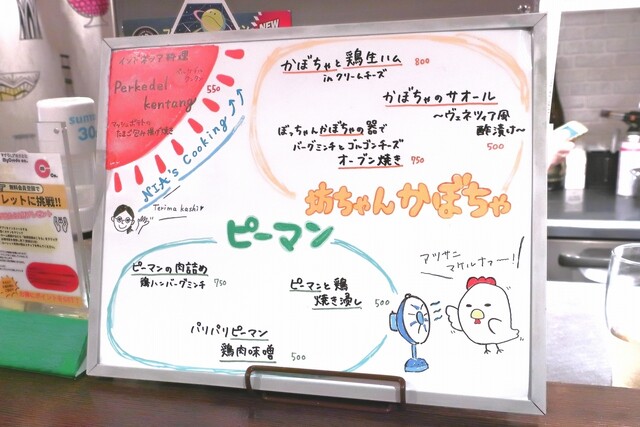 インドネシア料理
Perkedel
kentang
550
NIA's Cooking
Terima kashi
かぼちゃと鶏生ハム 800
in クリームチーズ
かぼちゃのサオール
～ヴェネツィア風
酢漬け～
500
ぼっちゃんかぼちゃの器で
バーグミンチとゴルゴンチーズ
オーブン焼き 750
坊ちゃんかぼちゃ
ピーマン
ピーマンの肉詰め
鶏ハンバーグミンチ 750
ピーマンと鶏
焼き浸し 500
パリパリピーマン
鶏肉味噌 500
アツサニ
マケルナァー!
summ
30
レットに挑戦!!